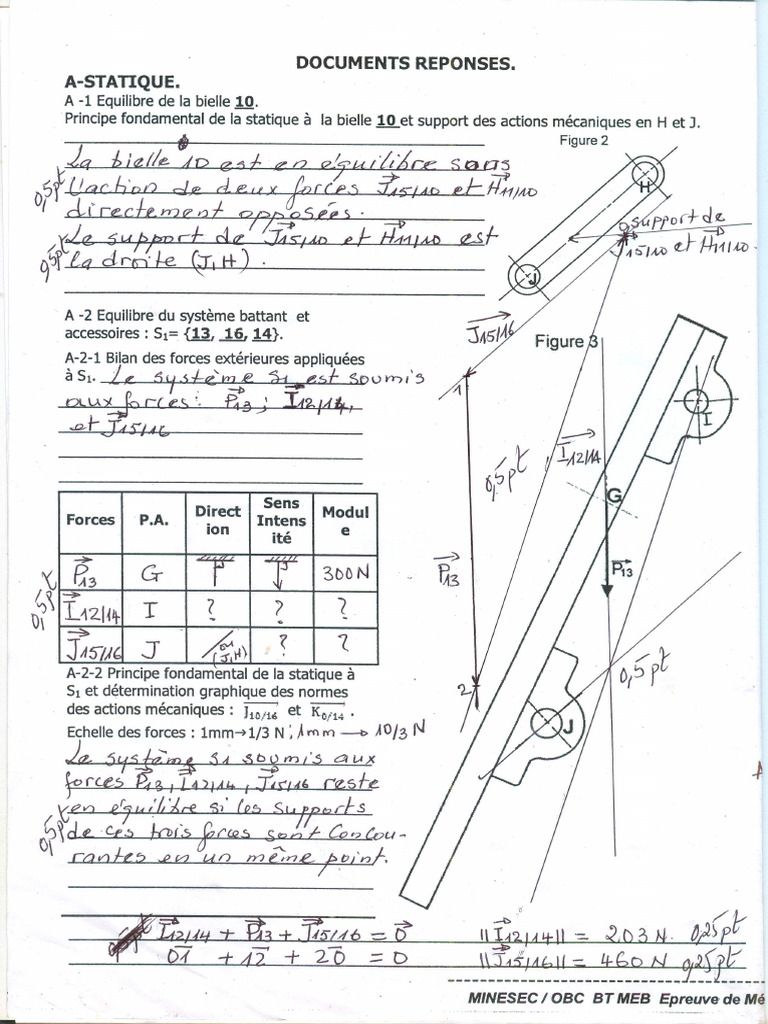 DOCUMENTS REPONSES.
A-STATIQUE.
A -1 Equilibre de la bielle 10.
Principe fondamental de la statique à la bielle 10 et support des actions mécaniques en H et J.
Figure 2
La bielle 10 est en équilibre sous
0,5pt
l'action de deux forces J15/10 et H11/10
directement opposées.
Le support de J15/10 et H11/10 est
0,5pt
la droite (J,H).
H
J
0,5 support de
J15/10 et H11/10.
A -2 Equilibre du système battant et
accessoires : S1= {13, 16, 14}.
A-2-1 Bilan des forces extérieures appliquées
à S1. Le système S1 est soumis
aux forces: P13; I12/14,
et J15/16
J15/16
Figure 3
1
I
0,5pt
I12/14
G
P13
P13
2
0,5pt
J
Forces P.A. Direct ion Sens Intens ité Modul e
P13 G 300N
0,5pt
I12/14 I ? ? ?
J15/16 J ou (J,H) ? ?
A-2-2 Principe fondamental de la statique à
S1 et détermination graphique des normes
des actions mécaniques : J10/16 et K0/14 .
Echelle des forces : 1mm→1/3 N ; 1mm → 10/3 N
Le système S1 soumis aux
forces P13, I12/14, J15/16 reste
en équilibre si les supports
0,5pt
de ces trois forces sont concou-
rantes en un même point.
I12/14 + P13 + J15/16 = 0
01 + 12 + 20 = 0
||I12/14|| = 203 N. 0,25pt
||J15/16|| = 460 N 0,25pt
MINESEC / OBC BT MEB Epreuve de Mé